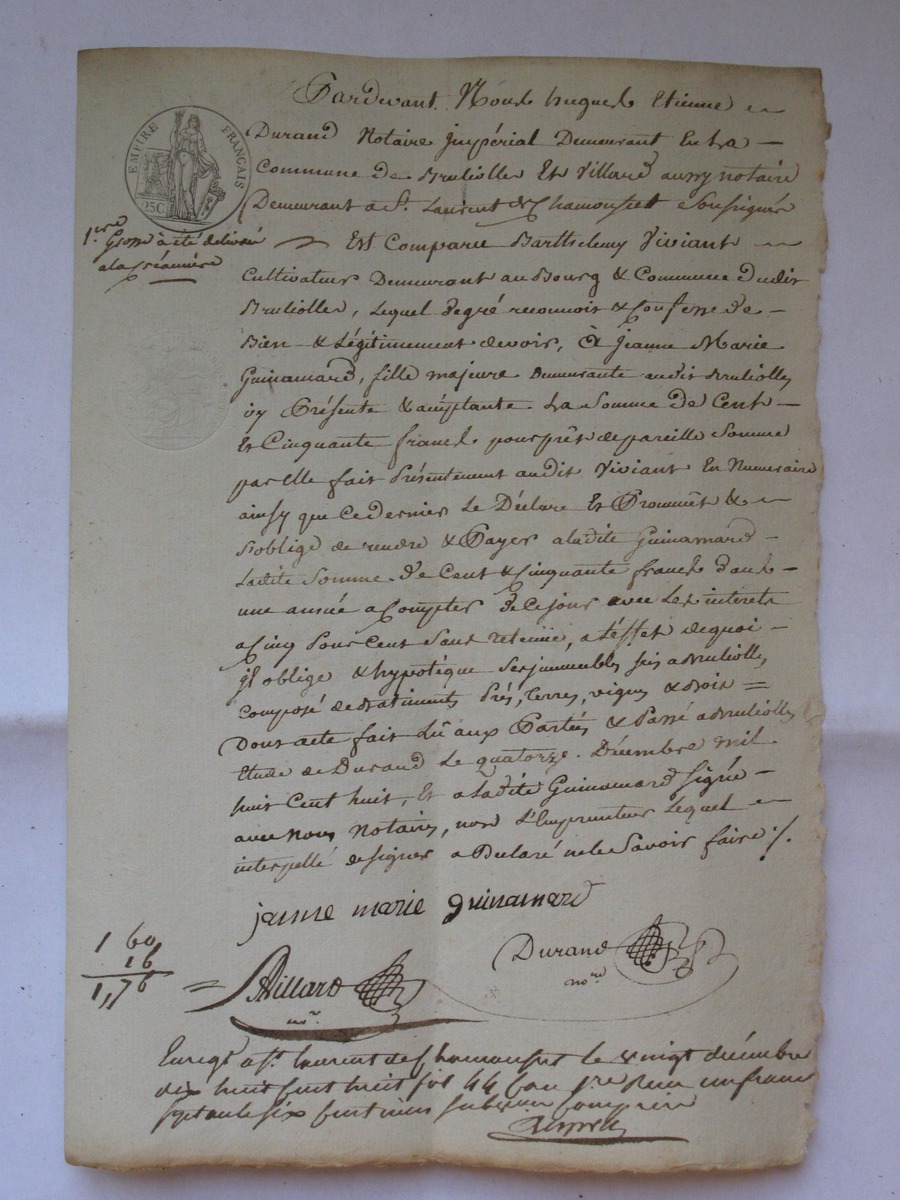 EMPIRE FRANÇAIS
25C
Pardevant Nous hugues Etienne
Durand Notaire Jmpérial Demeurant En La
Commune de Brulioles Et Villard aussy notaire
Demeurant a St. Laurent de Chamousset Soussignés
1.ere
Grosse à été delivrée
a la Créancière
Est Comparu Barthelemy Viviant
Cultivateur Demeurant au Bourg & Commune dudit
Brulioles, Lequel de gré reconnoit & Confesse de
Bien & Légitimement devoir, à jeanne Marie
Guinamard, fille majeure Demeurante audit Brulioles
icy Présente & acceptante La Somme de Cent
Et Cinquante francs pour prêt de pareille Somme
par Elle fait Présentement audit Viviant En Numeraire
ainsy que ce dernier Le Déclare Et Prommêt &
s'oblige de rendre & Payer a ladite Guinamard
Ladite Somme de Cent & Cinquante francs dans
une année a Compter de ce jour avec Les interets
a Cinq Pour Cent Sans retenüe, a L'effet de quoi
jl oblige & hypotèque Ses jmmeubles sis a Brulioles
composé de Batiments Prés, Terres, vignes & Bois =
Dont acte fait Lû aux Parties & Passé a Brulioles
Etude de Durand Le quatorze Décembre mil
huit Cent huit, Et a Ladite Guinamard Signée
avec Nous Notaires, non L'Emprunteur Lequel
interpellé de signer a Déclaré ne le Savoir faire ./.
janne marie guinamard
Durand
no.re
1 60
16
1,76
= Villard
no.r
Enregé a st. laurent de Chamousset le vingt décembre
dix huit cent huit fol 44 reçu un franc
Septante six centimes subvention comprise